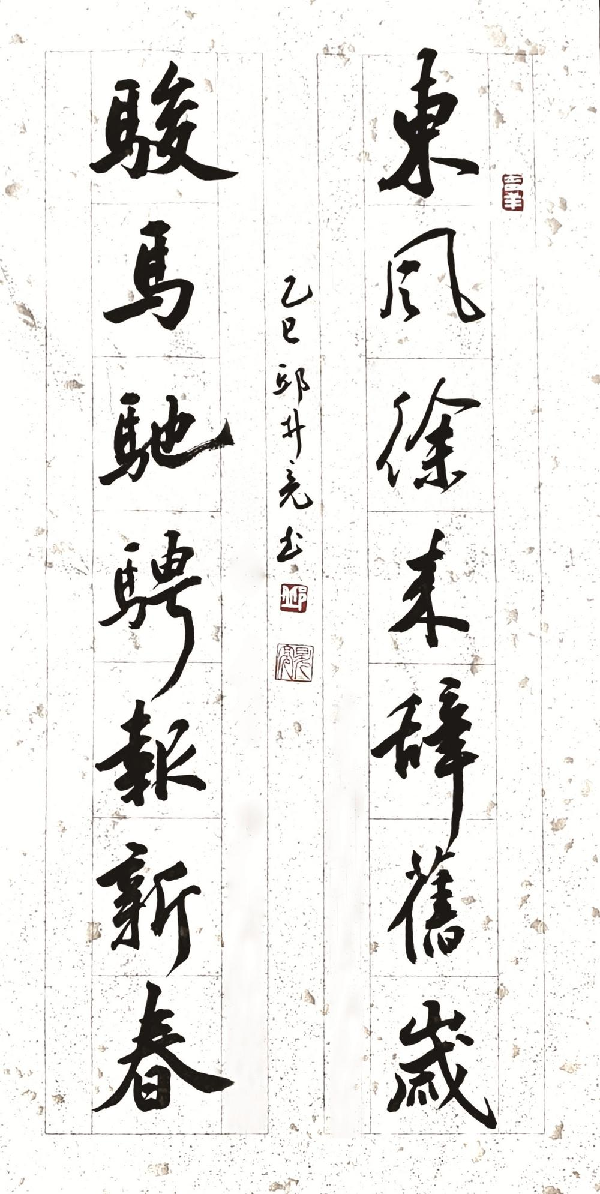 東風徐来辭舊歲
駿馬馳騁報新春
乙巳邱井亮书
邱